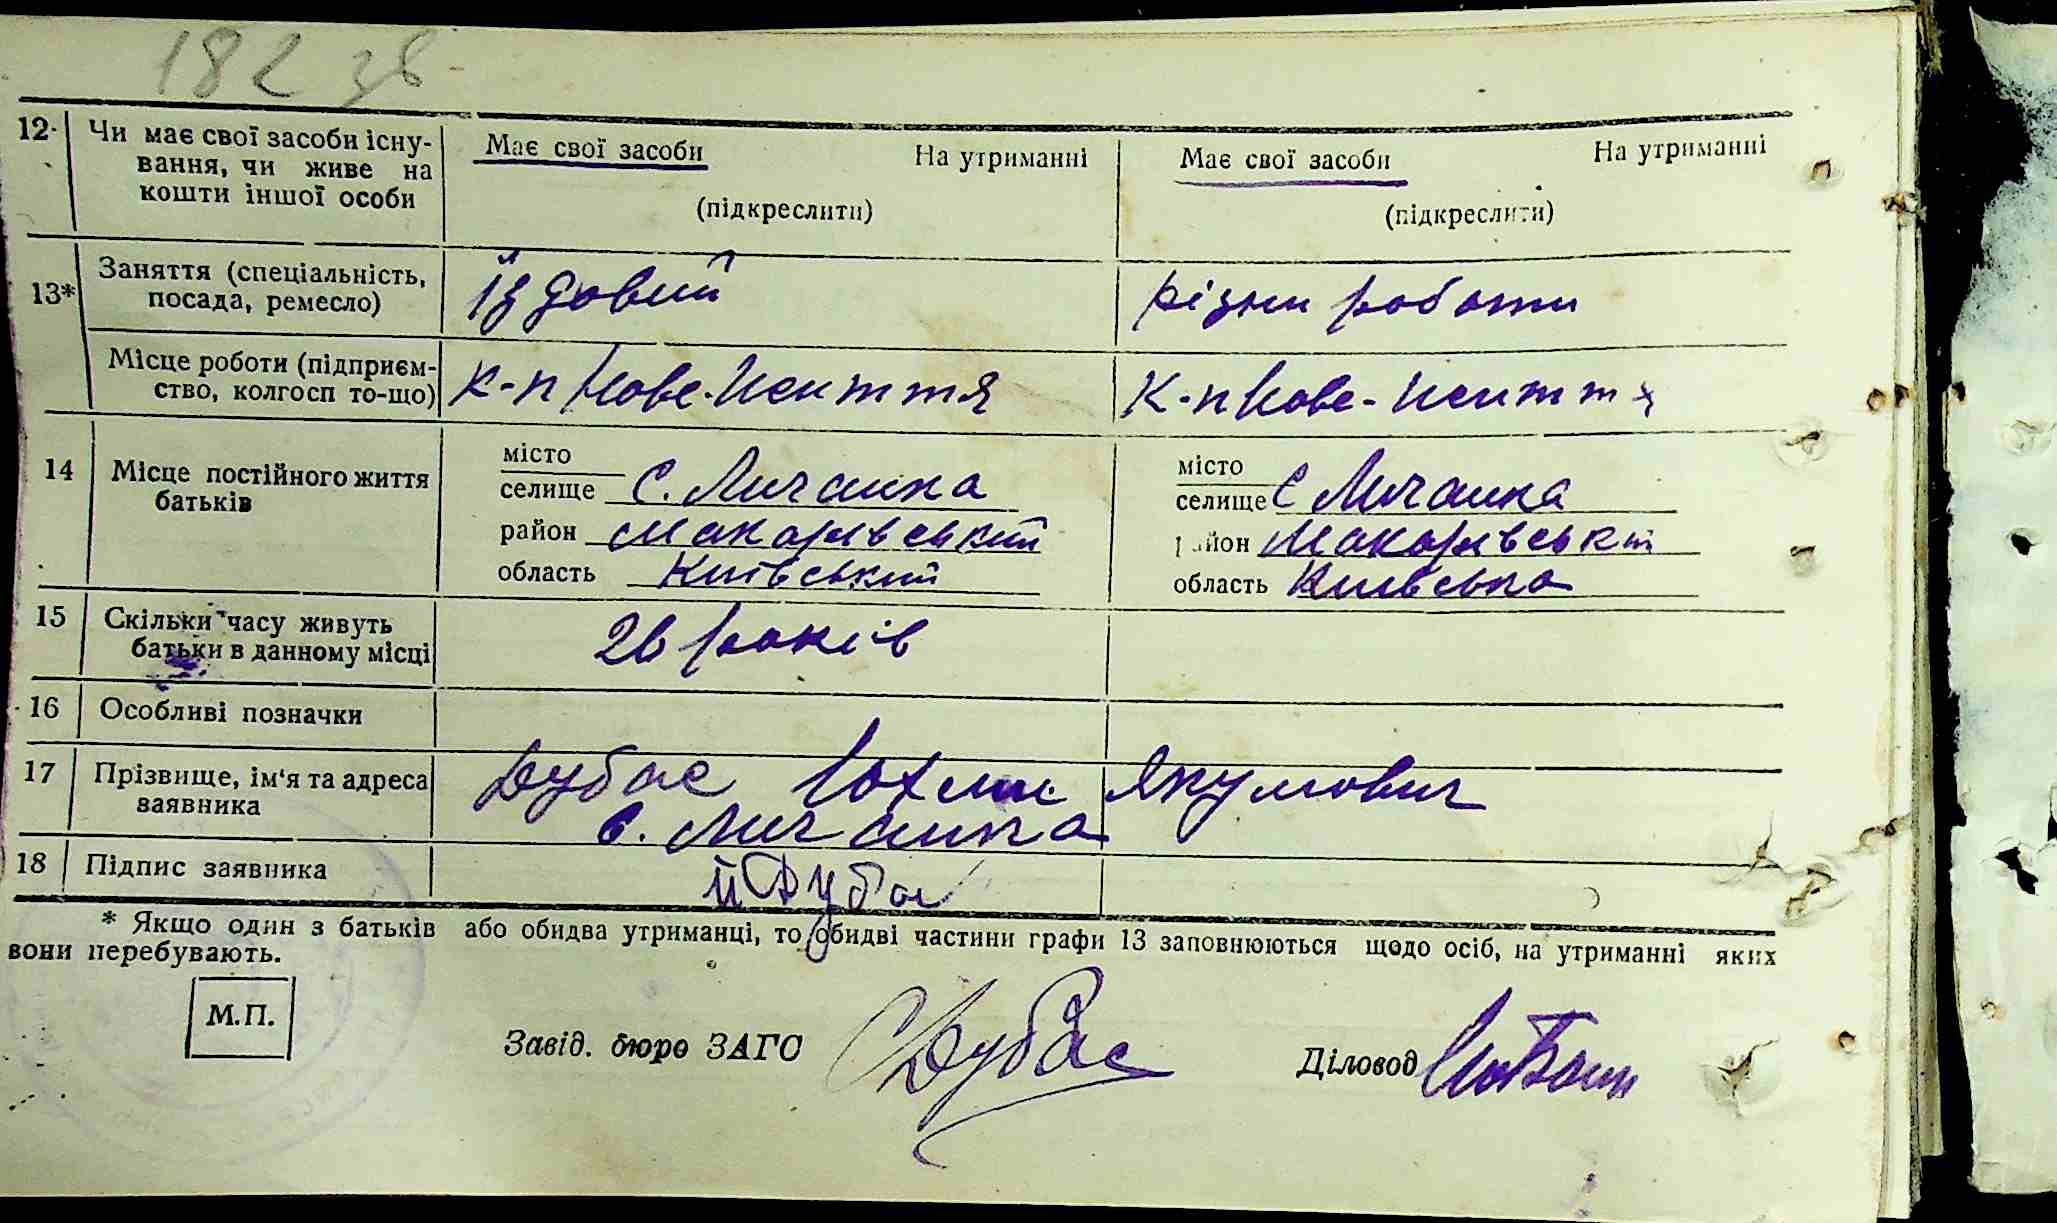 182 зв
12. Чи має свої засоби існу- Має свої засоби На утриманні Має свої засоби На утриманні
вання, чи живе на
кошти іншої особи (підкреслити) (підкреслити)
13* Заняття (спеціальність,
посада, ремесло) їздовий різни роботи
Місце роботи (підприєм-
ство, колгосп то-що) К-п Нове-Життя К-п Нове-Життя
14 Місце постійного життя
батьків
місто місто
селище с. Личанка селище с Личанка
район Макарівський район Макарівський
область Київський область Київська
15 Скільки часу живуть
батьки в данному місці 26 років
16 Особливі позначки
17 Прізвище, ім'я та адреса Дубас Якумович
заявника с. Личанка
18 Підпис заявника Дубас
* Якщо один з батьків або обидва утриманці, то обидві частини графи 13 заповнюються щодо осіб, на утриманні яких
вони перебувають.
М.П.
Завід. бюро ЗАГС Дубас Діловод